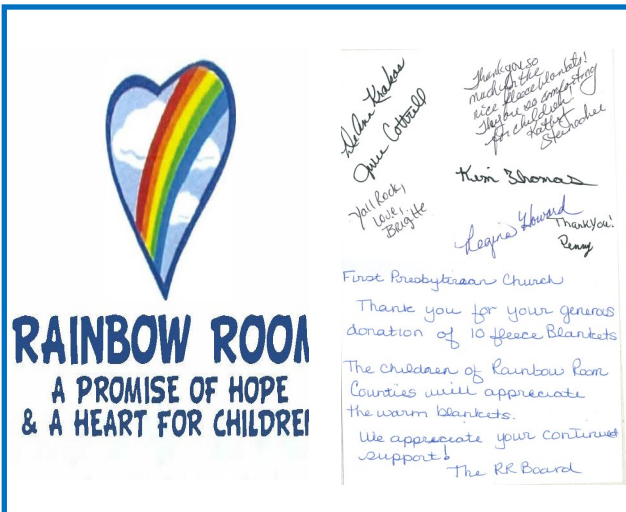 RAINBOW ROOM
A PROMISE OF HOPE
& A HEART FOR CHILDREN
DeAnn Krakos
June Cottrell
Yall Rock,
Love,
Brigitte
Thank you so
much for the
nice fleece blankets!
They are so comforting
for children
Kathy
Kim Thomas
Regina Howard
Thank You!
Penny
First Presbyterian Church
Thank you for your generous
donation of 10 fleece Blankets
The children of Rainbow Room
Counties will appreciate
the warm blankets.
We appreciate your continued
support!
The RR Board